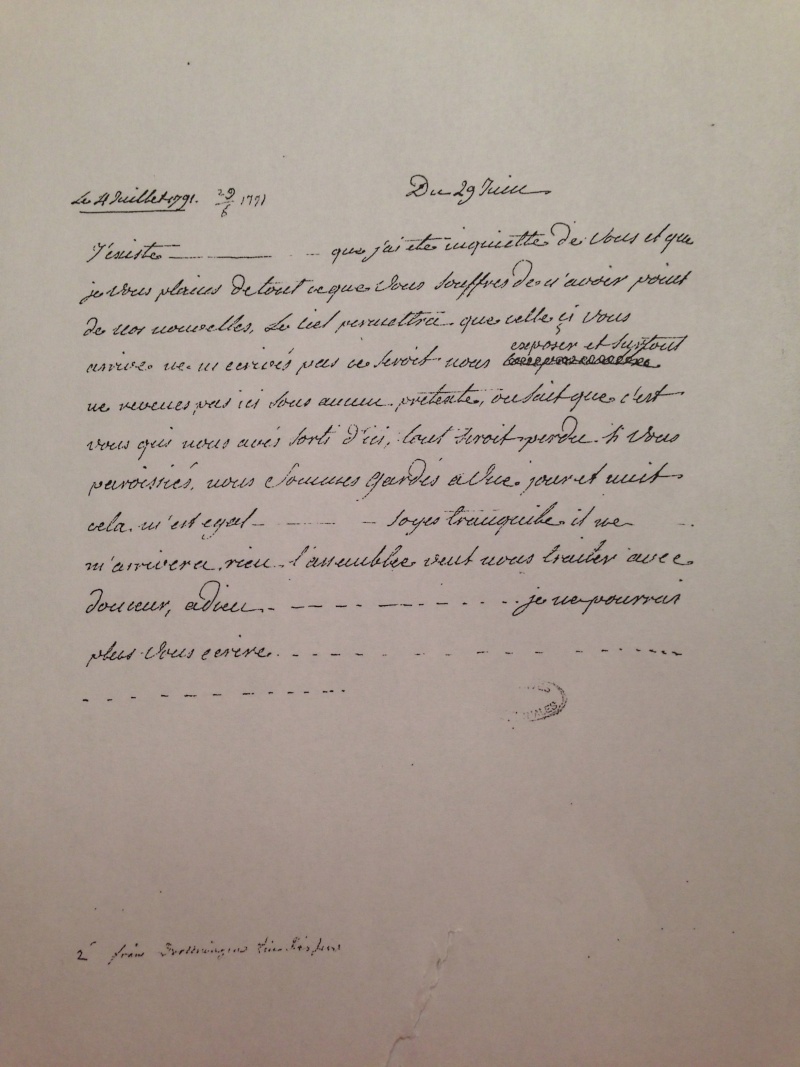 Le 4 Juillet 1791. 29/6 1791 Du 29 Juin
J'existe — que j'ai été inquiette de vous et que
je vous plains de tout ce que vous souffres de n'avoir point
de nos nouvelles, Le ciel permettra que celle çi vous
arrive ne m'ecrivés pas ce seroit nous exposer et surtout
ne revenes pas ici sous aucun pretexte, on sait que c'est
vous qui nous avés sorti d'ici, tout seroit perdu si vous
paroissiés, nous sommes gardés a vue jour et nuit
cela m'est egal - - - - soyes tranquile il ne
m'arrivera rien l'assemblée veut nous traiter avec
douceur, adieu - - - - - - - - je ne pourrai
plus vous ecrire - - - - - - - - - - -
- - - - - - - - - - -
2 från Drottningen